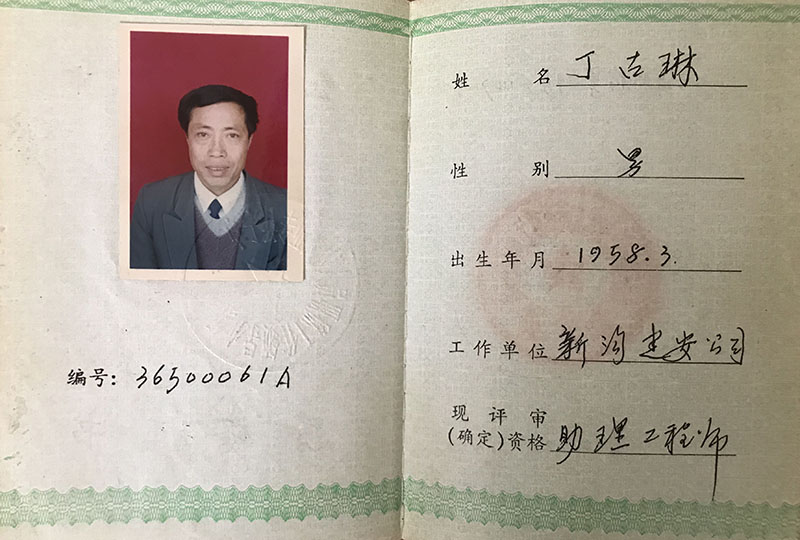 编号: 36500061A
姓 名 丁古琳
性 别 男
出生年月 1958.3.
工作单位 新沟建安公司
现 评 审
(确定)资格 助理工程师